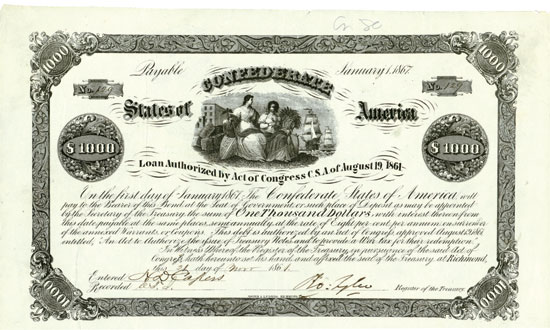 1000 1000
Payable January 1, 1867.
CONFEDERATE
No. No.
States of America
$1000 $1000
Loan Authorized by Act of Congress C.S.A. of August 19, 1861
On the first day of January 1867, The Confederate States of America, will
pay to the Bearer of this Bond at the Seat of Government, or such place of Deposit as may be appointed
by the Secretary of the Treasury the sum of One Thousand Dollars, with interest thereon from
this date payable at the same places, semi-annually, at the rate of Eight per cent per annum on surrender
of the annexed Warrants or Coupons. This debt is authorized by an act of Congress approved August 19, 1861
entitled, "An Act to Authorize the issue of Treasury Notes and to provide a War tax for their redemption."
In Witness Whereof The Register of the Treasury, in pursuance of the said Act of
Congress, hath hereunto set his hand, and affixed the seal of the Treasury at Richmond,
this day of Nov 1861.
Entered
Recorded Ro. Tyler Register of the Treasury.
1000 1000